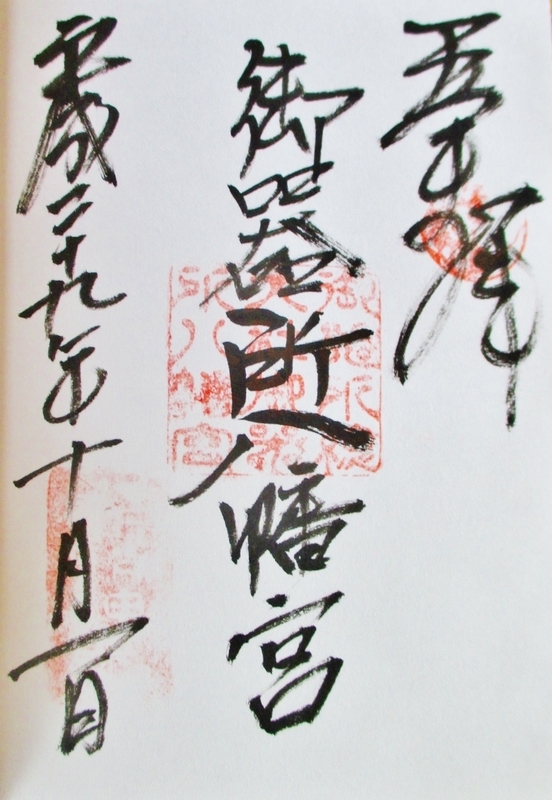 奉拝
御器所八幡宮
平成二十九年十月一日